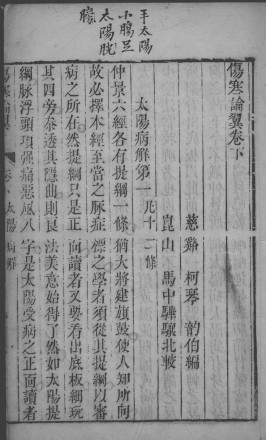 手太陽
小腸足
太陽
傷寒論翼卷下
慈谿 柯琴 韵伯編
崑山 馬中驊驤北較
太陽病解第一 凡十二條
仲景六經各有提綱一條猶大將建旗鼓使人知所向
故必擇本經至當之脉症標之學者須從其提綱以審
病之所在然提綱只是正面讀者又要看出底板細玩
其四旁參透其隱曲則良法美意始得了然如太陽提
綱脉浮頭項強痛惡風八字是太陽受病之正面讀者
傷寒論翼 太陽病解